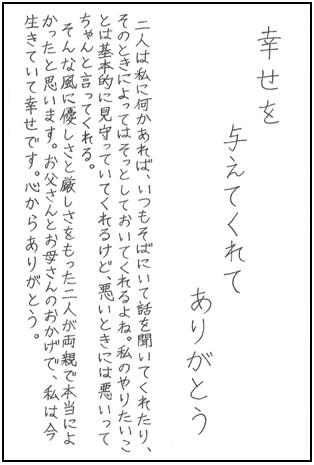 幸せを
与えてくれて
ありがとう
二人は私に何かあれば、いつもそばにいて話を聞いてくれたり、
そのときによってはそっとしておいてくれるよね。私のやりたいこ
とは基本的に見守っていてくれるけど、悪いときには悪いって
ちゃんと言ってくれる。
そんな風に優しさと厳しさをもった二人が両親で本当によ
かったと思います。お父さんとお母さんのおかげで、私は今
生きていて幸せです。心からありがとう。